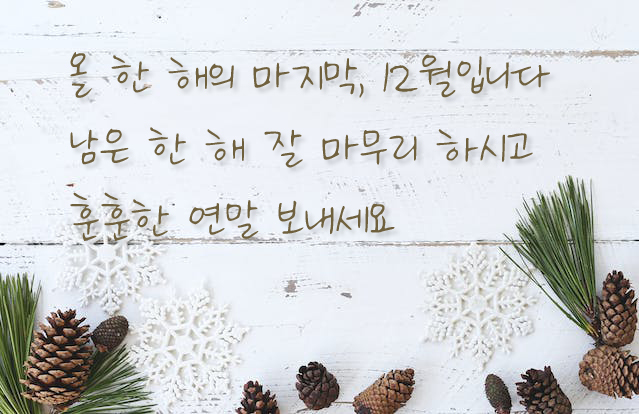 올 한 해의 마지막, 12월입니다
남은 한 해 잘 마무리 하시고
훈훈한 연말 보내세요